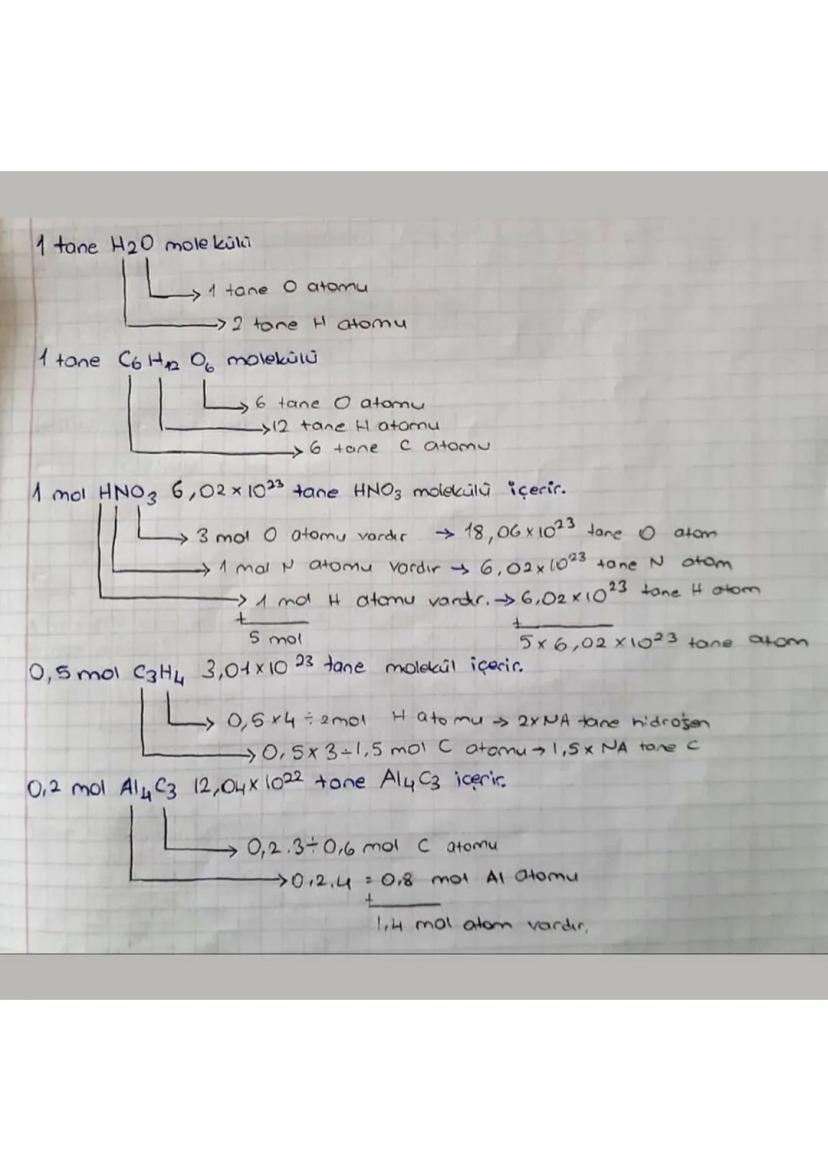 1 tane H2O molekülü
→ 1 tane O atomu
→ 2 tane H atomu
1 tane C6H12O6 molekülü
→ 6 tane O atomu
→ 12 tane H atomu
→ 6 tane C atomu
1 mol HNO3 6,02 × 10²³ tane HNO3 molekülü içerir.
→ 3 mol O atomu vardır → 18,06 × 10²³ tane O atom
→ 1 mol N atomu vardır → 6,02 × 10²³ tane N atom
→ 1 mol H atomu vardır. → 6,02 × 10²³ tane H atom
+ +
5 mol 5 × 6,02 × 10²³ tane atom
0,5 mol C3H4 3,01 × 10²³ tane molekül içerir.
→ 0,5 × 4 ÷ 2mol H atomu → 2 × NA tane hidrojen
→ 0,5 × 3 ÷ 1,5 mol C atomu → 1,5 × NA tane C
0,2 mol Al4C3 12,04 × 10²² tane Al4C3 içerir.
→ 0,2.3 ÷ 0,6 mol C atomu
→ 0,2.4 = 0,8 mol Al atomu
+
1,4 mol atom vardır.